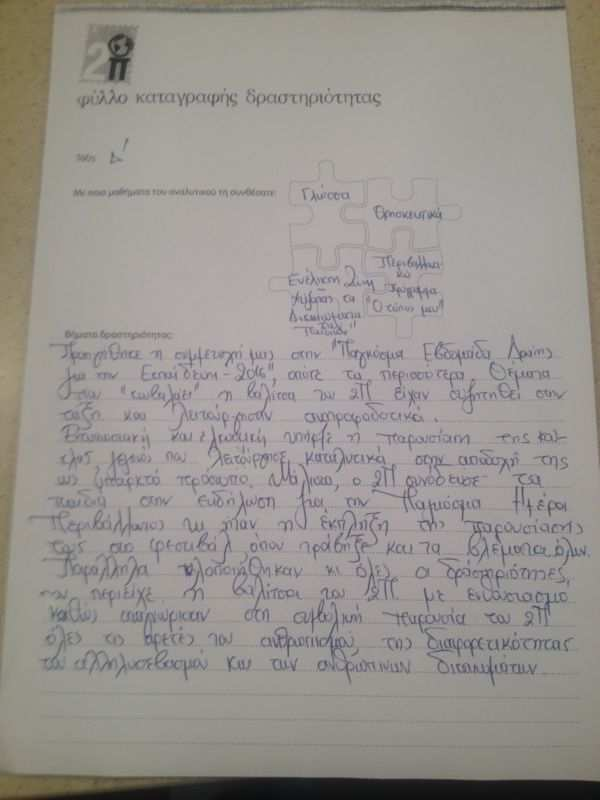 2
Π
φύλλο καταγραφής δραστηριότητας
Τάξη Δ'
Με ποια μαθήματα του αναλυτικού τη συνθέσατε:
Γλώσσα
Θρησκευτικά
Ευέλικτη Ζώνη
Δικαιώματα
των
Παιδιών"
Περιβαλλοντι-
κό
Πρόγραμμα
"Ο τόπος μου"
Βήματα δραστηριότητας:
Προηγήθηκε η συμμετοχή μας στην "Παγκόσμια Εβδομάδα Δράσης
για την Εκπαίδευση - 2016", οπότε τα περισσότερα θέματα
που "κουβαλάει" η βαλίτσα του 2Π είχαν συζητηθεί στην
τάξη και λειτούργησαν
και η παρουσίαση της
που λειτούργησε καταλυτικά στην αποδοχή της
ως υπαρκτό πρόσωπο. Μάλιστα, ο 2Π συνόδευσε τα
παιδιά στην εκδήλωση για την Παγκόσμια Ημέρα
Περιβάλλοντος κι ήταν η έκπληξη της παρουσίασης
τους στο φεστιβάλ όπου τράβηξε και τα βλέμματα όλων.
Παράλληλα υλοποιήθηκαν κι όλες οι δραστηριότητες,
που περιείχε η βαλίτσα του 2Π με ενθουσιασμό
καθώς στη συμβολική παρουσία του 2Π
όλες τις αρετές του ανθρωπισμού, της διαφορετικότητας
του αλληλοσεβασμού και των ανθρώπινων δικαιωμάτων.